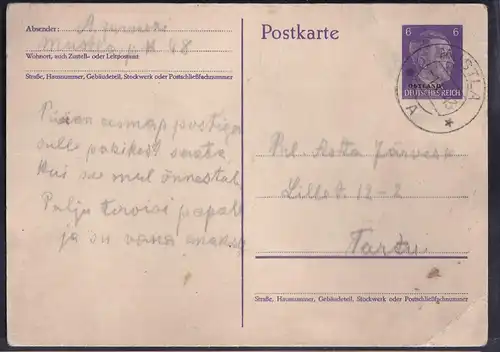 Absender:
Mustla, p.k 48
Wohnort, auch Zustell- oder Leitpostamt
Straße, Hausnummer, Gebäudeteil, Stockwerk oder Postschließfachnummer
Püüan esmap postiga
sulle pakikest saata,
Kui se mul õnnestab.
Palju tervisi papale
ja su vana emale
Postkarte
6 6
OSTLAND
DEUTSCHES REICH
Prl. Asta Järvesk
12-2
Tartu
Straße, Hausnummer, Gebäudeteil, Stockwerk oder Postschließfachnummer